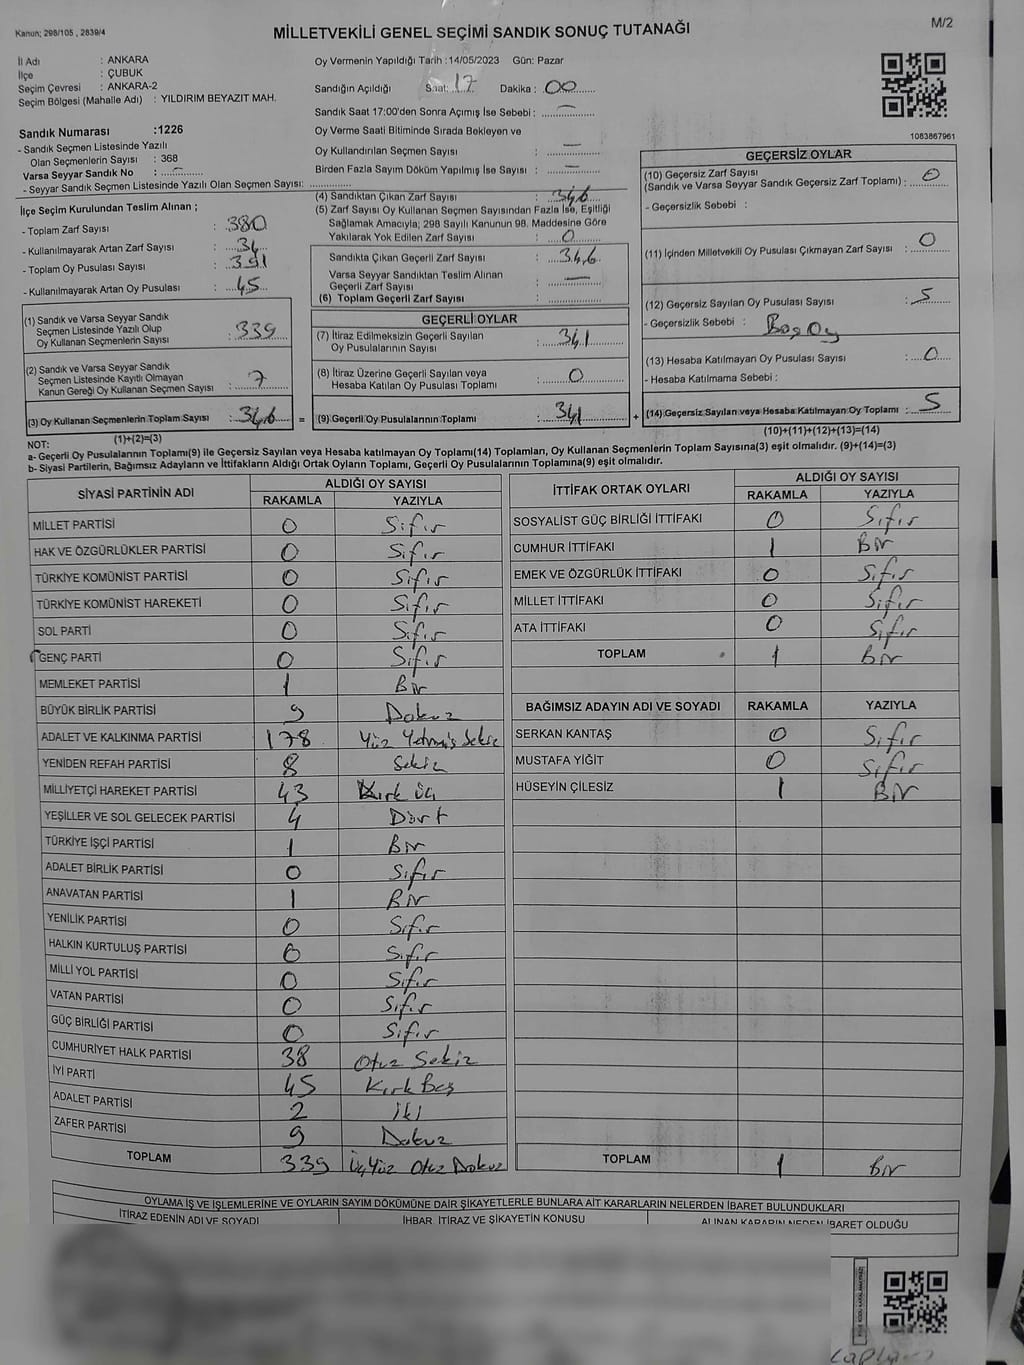 Kanun; 298/105 , 2839/4
MİLLETVEKİLİ GENEL SEÇİMİ SANDIK SONUÇ TUTANAĞI
M/2
İl Adı : ANKARA
İlçe : ÇUBUK
Seçim Çevresi : ANKARA-2
Seçim Bölgesi (Mahalle Adı) : YILDIRIM BEYAZIT MAH.
Sandık Numarası :1226
- Sandık Seçmen Listesinde Yazılı
Olan Seçmenlerin Sayısı : 368
Varsa Seyyar Sandık No : -
- Seyyar Sandık Seçmen Listesinde Yazılı Olan Seçmen Sayısı:
Oy Vermenin Yapıldığı Tarih :14/05/2023 Gün: Pazar
Sandığın Açıldığı Saat: 17 Dakika : 00
Sandık Saat 17:00'den Sonra Açımış İse Sebebi : -
Oy Verme Saati Bitiminde Sırada Bekleyen ve
Oy Kullandırılan Seçmen Sayısı : -
Birden Fazla Sayım Döküm Yapılmış İse Sayısı : -
1083867961
İlçe Seçim Kurulundan Teslim Alınan ;
- Toplam Zarf Sayısı : 380
- Kullanılmayarak Artan Zarf Sayısı : 34
- Toplam Oy Pusulası Sayısı : 391
- Kullanılmayarak Artan Oy Pusulası : 45
(1) Sandık ve Varsa Seyyar Sandık
Seçmen Listesinde Yazılı Olup
Oy Kullanan Seçmenlerin Sayısı : 339
(2) Sandık ve Varsa Seyyar Sandık
Seçmen Listesinde Kayıtlı Olmayan
Kanun Gereği Oy Kullanan Seçmen Sayısı : 7
(3) Oy Kullanan Seçmenlerin Toplam Sayısı : 346 =
(1)+(2)=(3)
(4) Sandıktan Çıkan Zarf Sayısı : 346
(5) Zarf Sayısı Oy Kullanan Seçmen Sayısından Fazla İse, Eşitliği
Sağlamak Amacıyla; 298 Sayılı Kanunun 98. Maddesine Göre
Yakılarak Yok Edilen Zarf Sayısı : 0
Sandıkta Çıkan Geçerli Zarf Sayısı : 346
Varsa Seyyar Sandıktan Teslim Alınan
Geçerli Zarf Sayısı : -
(6) Toplam Geçerli Zarf Sayısı :
GEÇERLİ OYLAR
(7) İtiraz Edilmeksizin Geçerli Sayılan
Oy Pusulalarının Sayısı : 341
(8) İtiraz Üzerine Geçerli Sayılan veya
Hesaba Katılan Oy Pusulası Toplamı : 0
(9) Geçerli Oy Pusulalarının Toplamı : 341 +
GEÇERSİZ OYLAR
(10) Geçersiz Zarf Sayısı
(Sandık ve Varsa Seyyar Sandık Geçersiz Zarf Toplamı) : 0
- Geçersizlik Sebebi :
(11) İçinden Milletvekili Oy Pusulası Çıkmayan Zarf Sayısı : 0
(12) Geçersiz Sayılan Oy Pusulası Sayısı : 5
- Geçersizlik Sebebi : Boş Oy
(13) Hesaba Katılmayan Oy Pusulası Sayısı : 0
- Hesaba Katılmama Sebebi :
(14) Geçersiz Sayılan veya Hesaba Katılmayan Oy Toplamı : 5
(10)+(11)+(12)+(13)=(14)
NOT:
a- Geçerli Oy Pusulalarının Toplamı(9) ile Geçersiz Sayılan veya Hesaba katılmayan Oy Toplamı(14) Toplamları, Oy Kullanan Seçmenlerin Toplam Sayısına(3) eşit olmalıdır. (9)+(14)=(3)
b- Siyasi Partilerin, Bağımsız Adayların ve İttifakların Aldığı Ortak Oyların Toplamı, Geçerli Oy Pusulalarının Toplamına(9) eşit olmalıdır.
SİYASİ PARTİNİN ADI ALDIĞI OY SAYISI
RAKAMLA YAZIYLA
MİLLET PARTİSİ 0 Sıfır
HAK VE ÖZGÜRLÜKLER PARTİSİ 0 Sıfır
TÜRKİYE KOMÜNİST PARTİSİ 0 Sıfır
TÜRKİYE KOMÜNİST HAREKETİ 0 Sıfır
SOL PARTİ 0 Sıfır
GENÇ PARTİ 0 Sıfır
MEMLEKET PARTİSİ 1 Bir
BÜYÜK BİRLİK PARTİSİ 9 Dokuz
ADALET VE KALKINMA PARTİSİ 178 Yüz Yetmiş Sekiz
YENİDEN REFAH PARTİSİ 8 Sekiz
MİLLİYETÇİ HAREKET PARTİSİ 43 Kırk üç
YEŞİLLER VE SOL GELECEK PARTİSİ 4 Dört
TÜRKİYE İŞÇİ PARTİSİ 1 Bir
ADALET BİRLİK PARTİSİ 0 Sıfır
ANAVATAN PARTİSİ 1 Bir
YENİLİK PARTİSİ 0 Sıfır
HALKIN KURTULUŞ PARTİSİ 0 Sıfır
MİLLİ YOL PARTİSİ 0 Sıfır
VATAN PARTİSİ 0 Sıfır
GÜÇ BİRLİĞİ PARTİSİ 0 Sıfır
CUMHURİYET HALK PARTİSİ 38 Otuz Sekiz
İYİ PARTİ 45 Kırk Beş
ADALET PARTİSİ 2 iki
ZAFER PARTİSİ 9 Dokuz
TOPLAM 339 Üçyüz Otuz Dokuz
İTTİFAK ORTAK OYLARI ALDIĞI OY SAYISI
RAKAMLA YAZIYLA
SOSYALİST GÜÇ BİRLİĞİ İTTİFAKI 0 Sıfır
CUMHUR İTTİFAKI 1 Bir
EMEK VE ÖZGÜRLÜK İTTİFAKI 0 Sıfır
MİLLET İTTİFAKI 0 Sıfır
ATA İTTİFAKI 0 Sıfır
TOPLAM 1 Bir
BAĞIMSIZ ADAYIN ADI VE SOYADI RAKAMLA YAZIYLA
SERKAN KANTAŞ 0 Sıfır
MUSTAFA YİĞİT 0 Sıfır
HÜSEYİN ÇİLESİZ 1 Bir
TOPLAM 1 Bir
OYLAMA İŞ VE İŞLEMLERİNE VE OYLARIN SAYIM DÖKÜMÜNE DAİR ŞİKAYETLERLE BUNLARA AİT KARARLARIN NELERDEN İBARET BULUNDUKLARI
İTİRAZ EDENİN ADI VE SOYADI İHBAR, İTİRAZ VE ŞİKAYETİN KONUSU ALINAN KARARIN NEDEN İBARET OLDUĞU